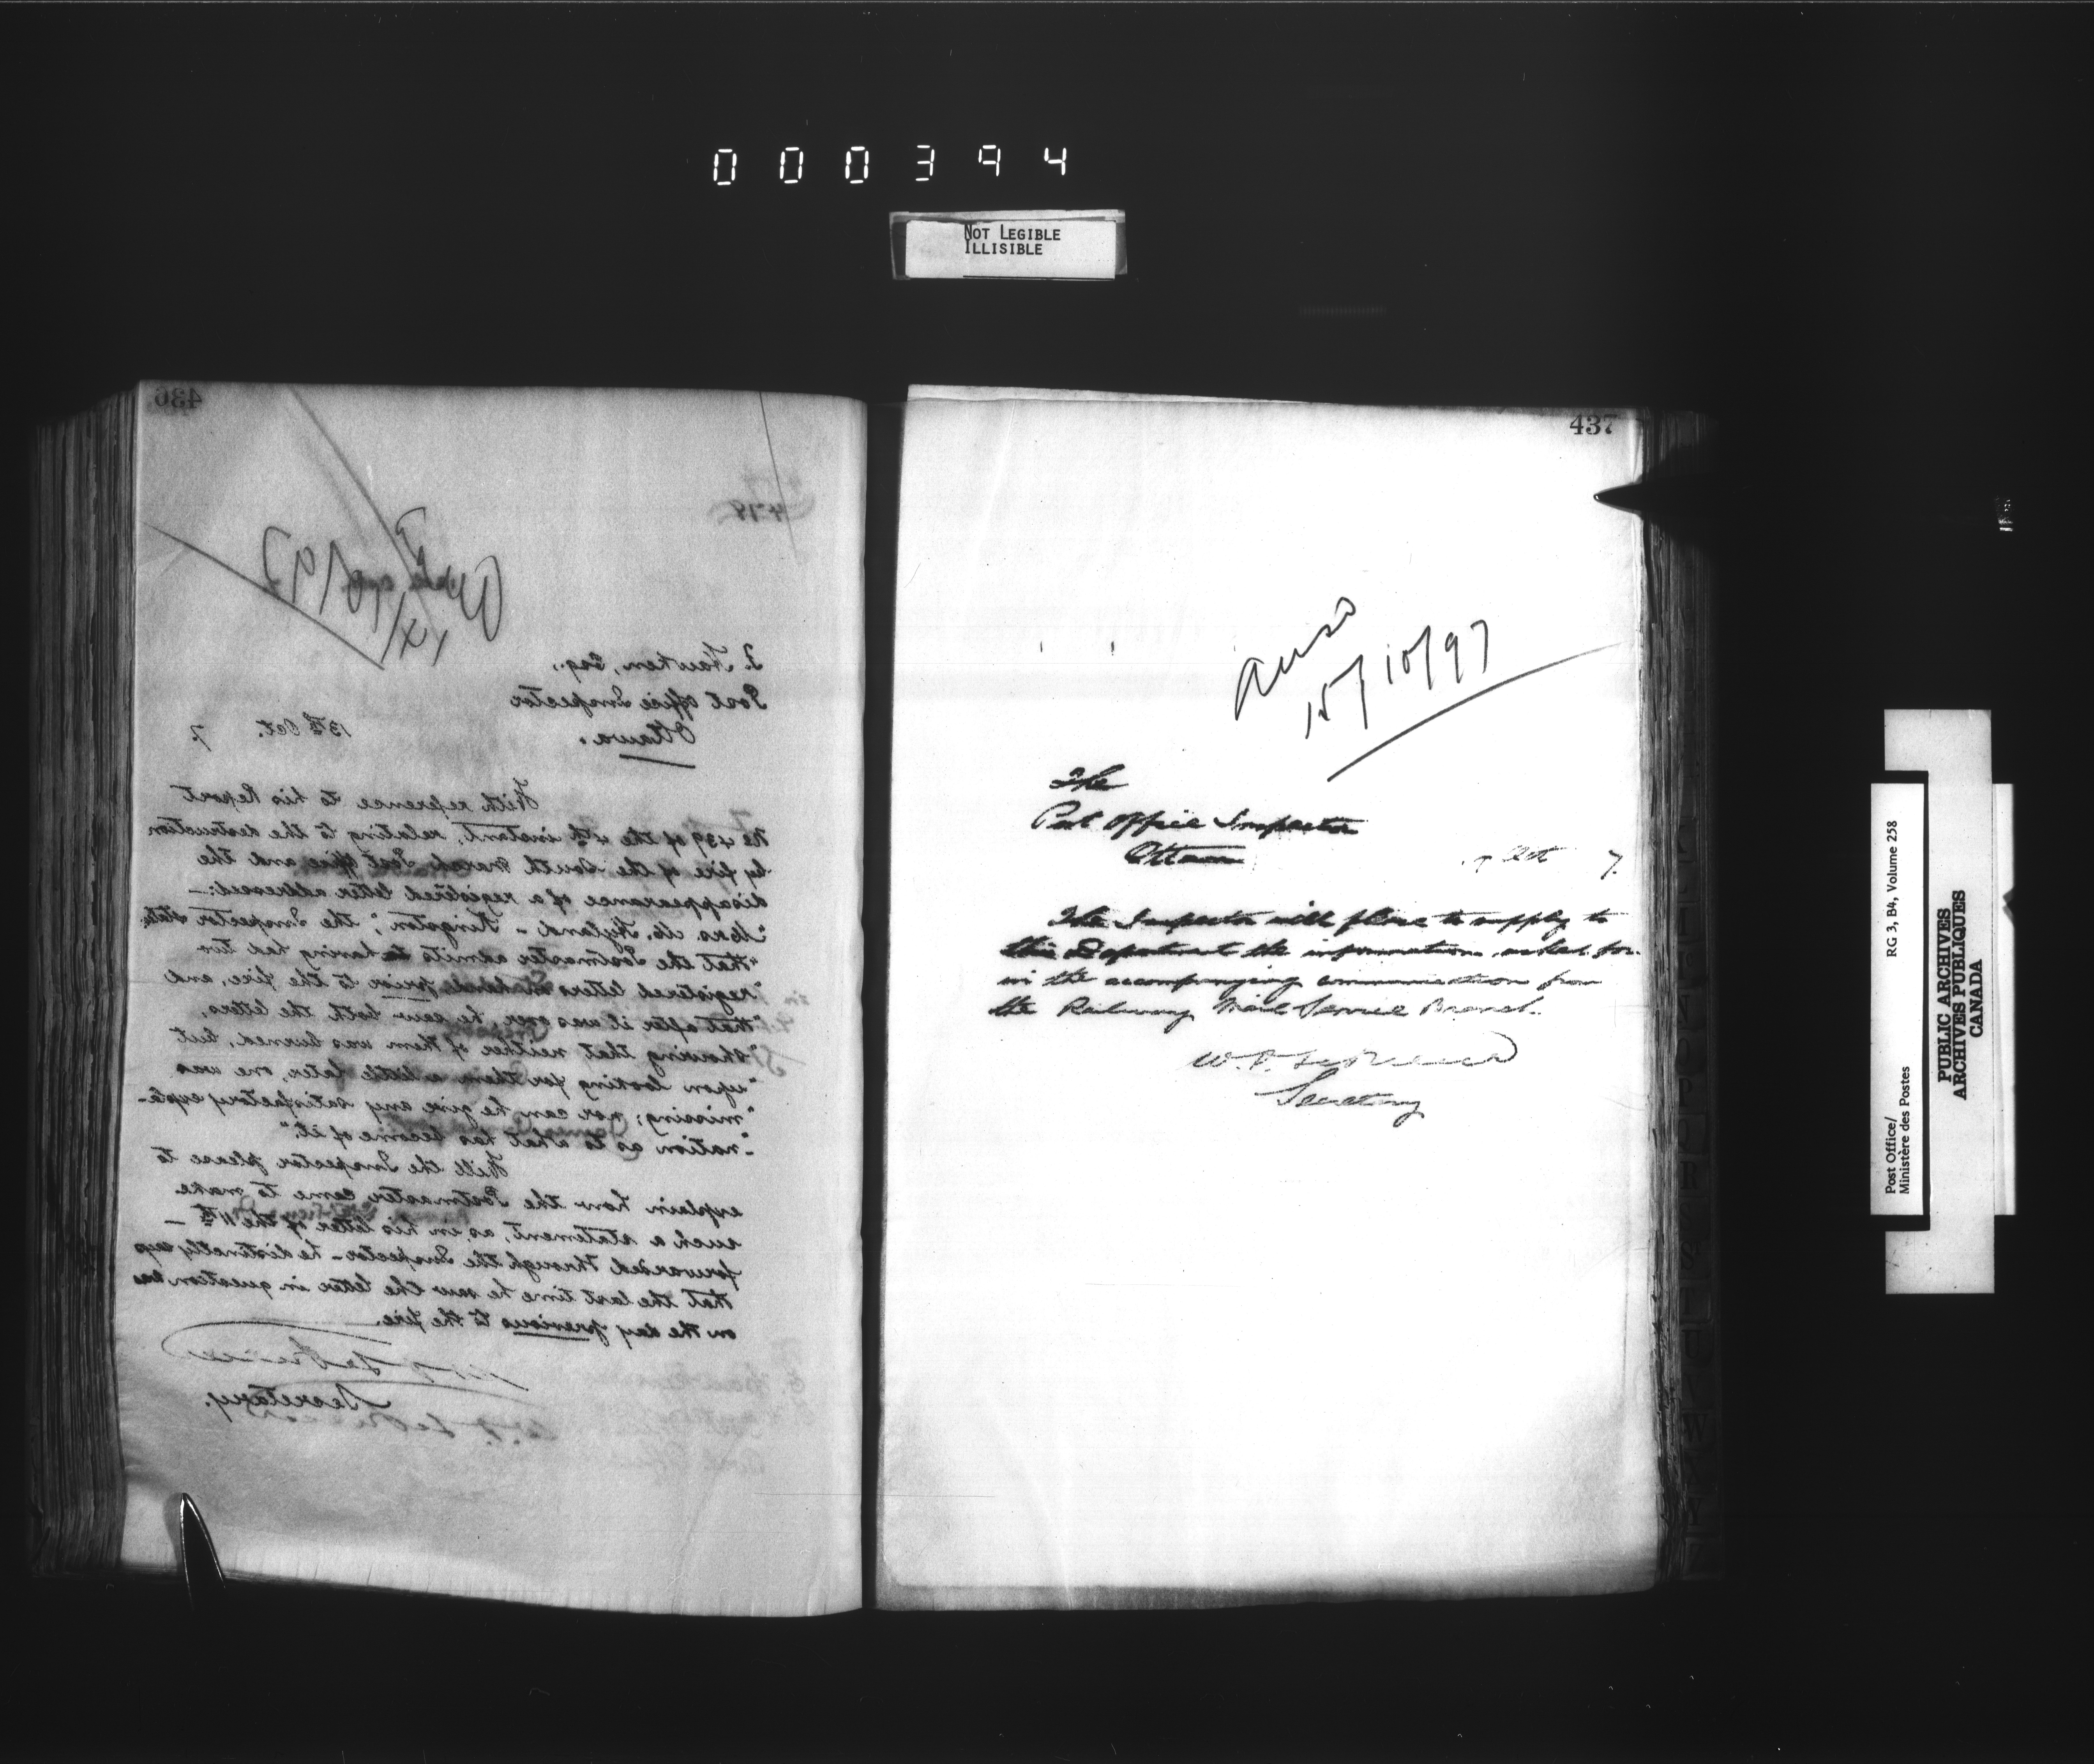 000394
NOT LEGIBLE
ILLISIBLE
436
478
T. Hawken, Esq.,
Post Office Inspector
Ottawa.
13th Oct. 7.
With reference to his Report
No 439 of the 4th instant, relating to the destruction
by fire of the South March Post Office and the
disappearance of a registered letter addressed:—
"Mrs. M. Hyland - Kingston"; the Inspector states
"that the Postmaster admits having had two
"registered letters on hand prior to the fire, and
"that after it was over, he saw both the letters,
"showing that neither of them was burned, but,
"upon looking for them a little later, one was
"missing; nor can he give any satisfactory expla-
"nation as to what has become of it."
Will the Inspector please to
explain how the Postmaster came to make
such a statement, as, in his letter of the 11th —
forwarded through the Inspector - he distinctly says
that the last time he saw the letter in question was
on the day previous to the fire.
Secretary.
437
Ansd
15/10/97
The
Post Office Inspector
Ottawa
Oct 7.
The Inspector will please to supply to
this Department the information asked for
in the accompanying communication from
the Railway Mail Service Branch.
Secretary
Post Office/ RG 3, B4, Volume 258
Ministère des Postes
PUBLIC ARCHIVES
ARCHIVES PUBLIQUES
CANADA